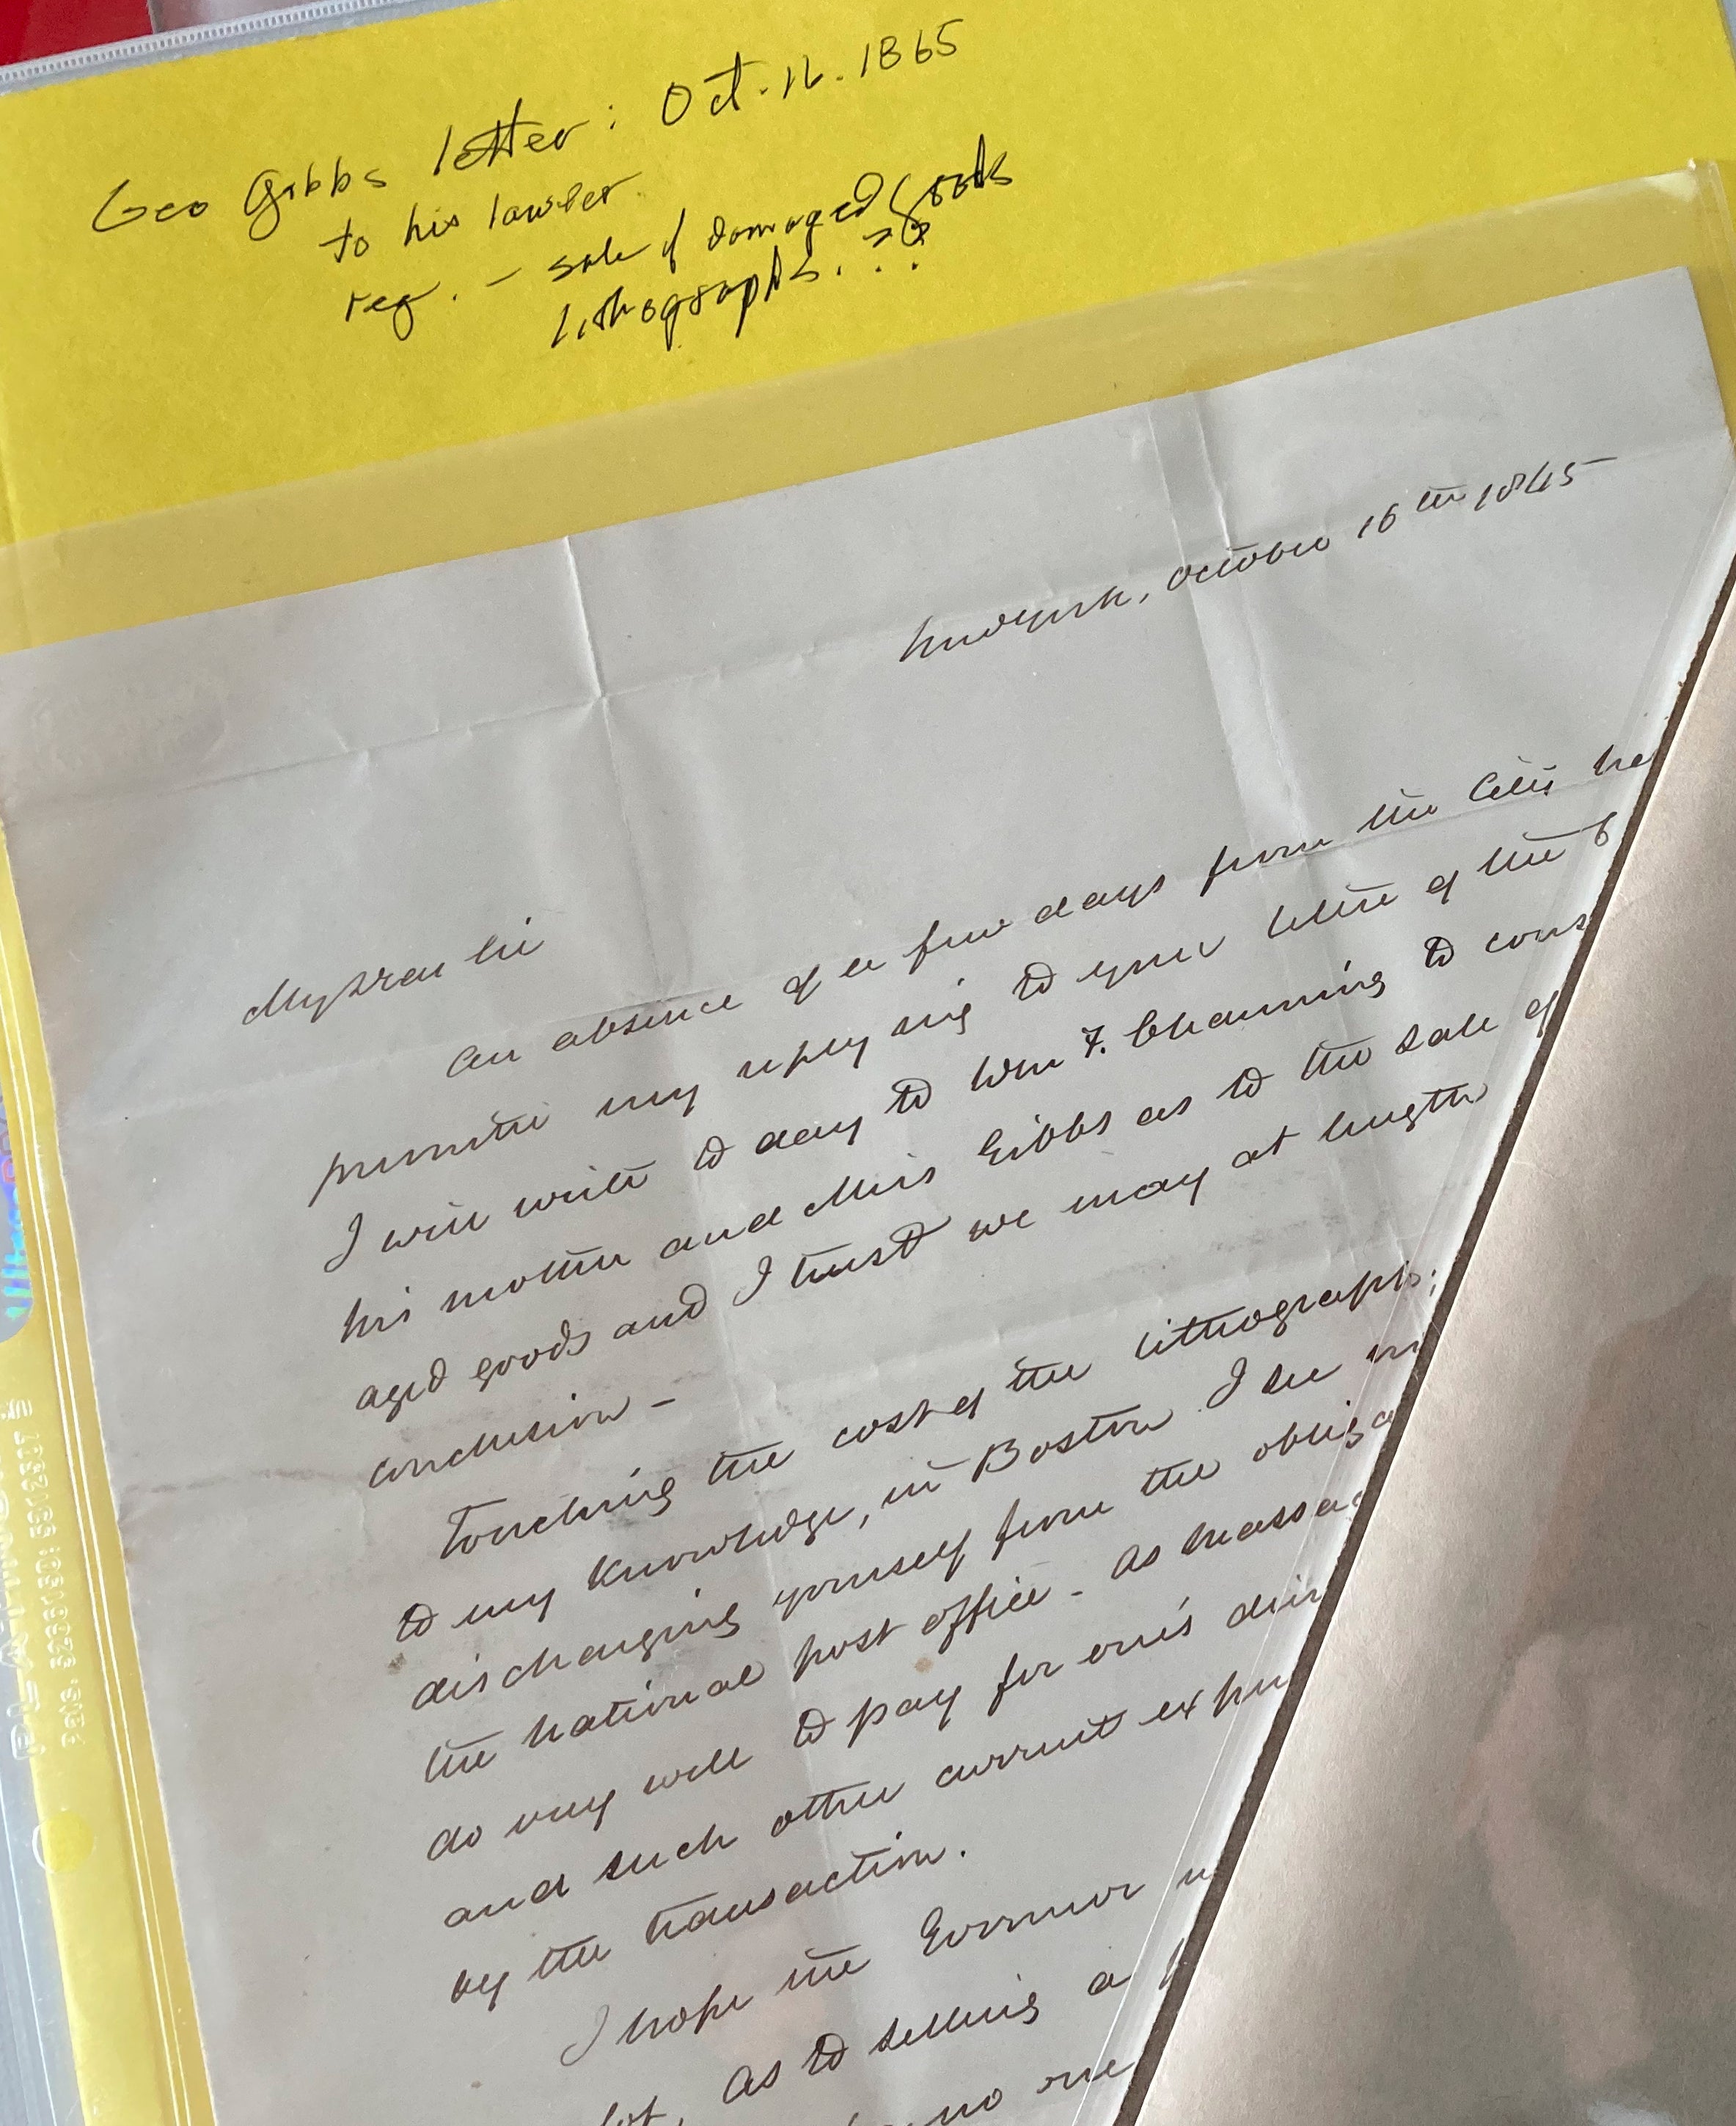 Geo Gibbs letter: Oct. 12. 1865
to his lawyer
reg. - sale of damaged goods
lithographs...?
New York, October 16th 1845
My Dear Sir
An absence of a few days from the City
permitte my replying to your letter of the
I will write to day to Wm F. Channing to
his mother and Miss Gibbs as to the sale of
aged goods and I trust we may at length
conclusion -
Touching the cost of the lithographs;
to my knowledge, in Boston I see
discharging yourself from the
the national post office - As
do very well to pay for one's
and such other current
by the transaction.
I hope the Governor
lot. As to selling a
no one